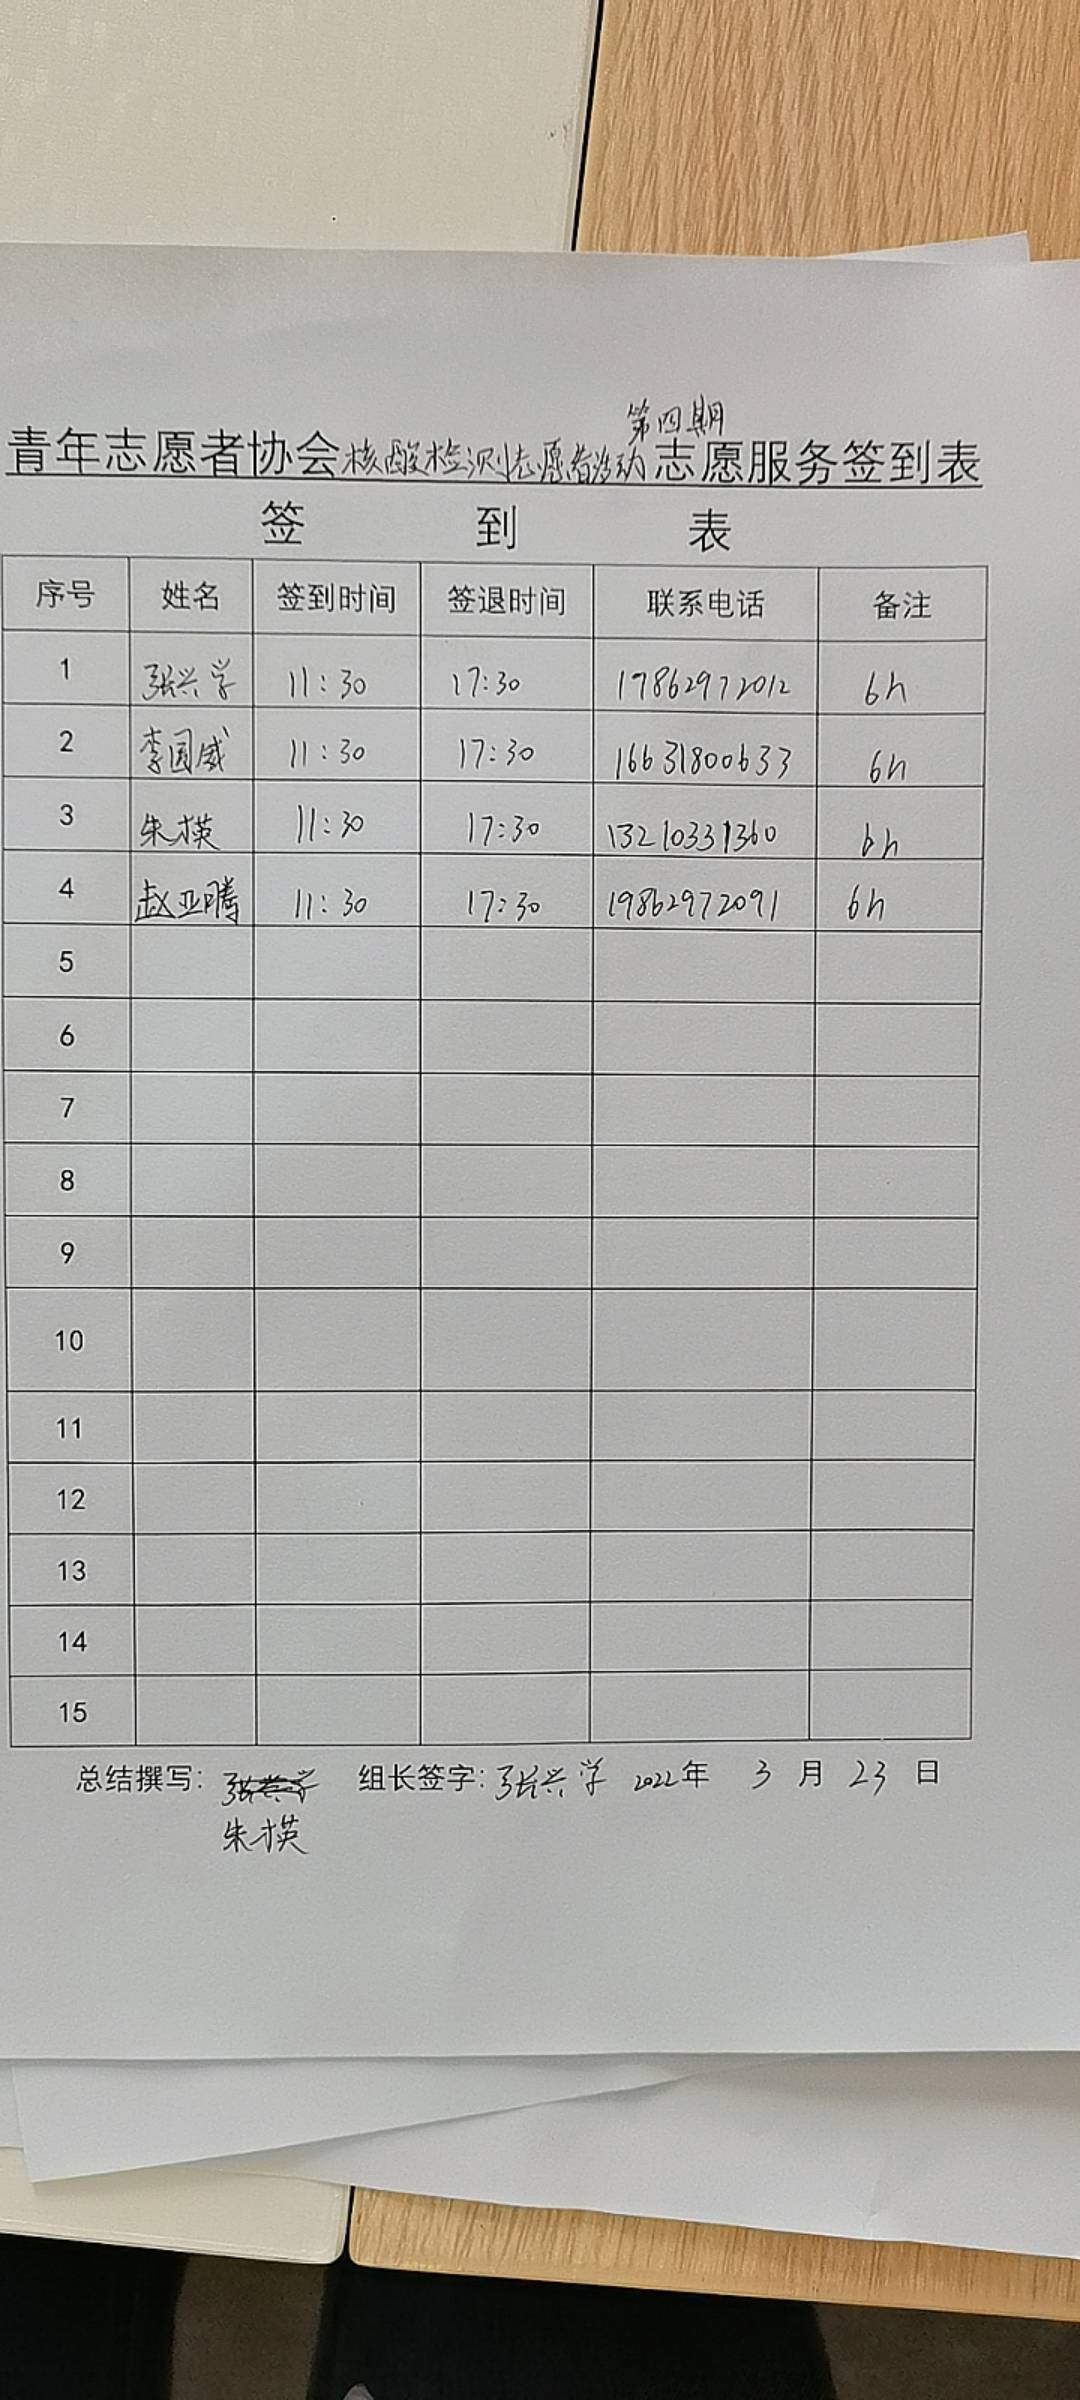 第四期
青年志愿者协会核酸检测志愿者活动志愿服务签到表
签 到 表
序号 姓名 签到时间 签退时间 联系电话 备注
1 张兴学 11:30 17:30 19862972012 6h
2 李国威 11:30 17:30 16631800633 6h
3 朱才英 11:30 17:30 13210331360 6h
4 赵亚腾 11:30 17:30 19862972091 6h
5
6
7
8
9
10
11
12
13
14
15
总结撰写: 张兴学 组长签字: 张兴学 2022年 3 月 23 日
朱才英